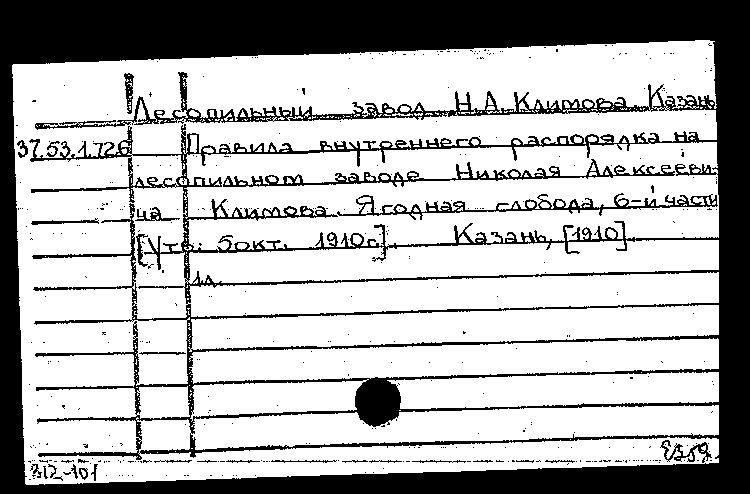 Лесопильный завод Н.А. Климова. Казань
37.53.1.726 Правила внутреннего распорядка на
лесопильном заводе Николая Алексееви-
ча Климова. Ягодная слобода, 6-й части
[Утв. 5 окт. 1910 г.]. Казань, [1910].
1 л.
312-101